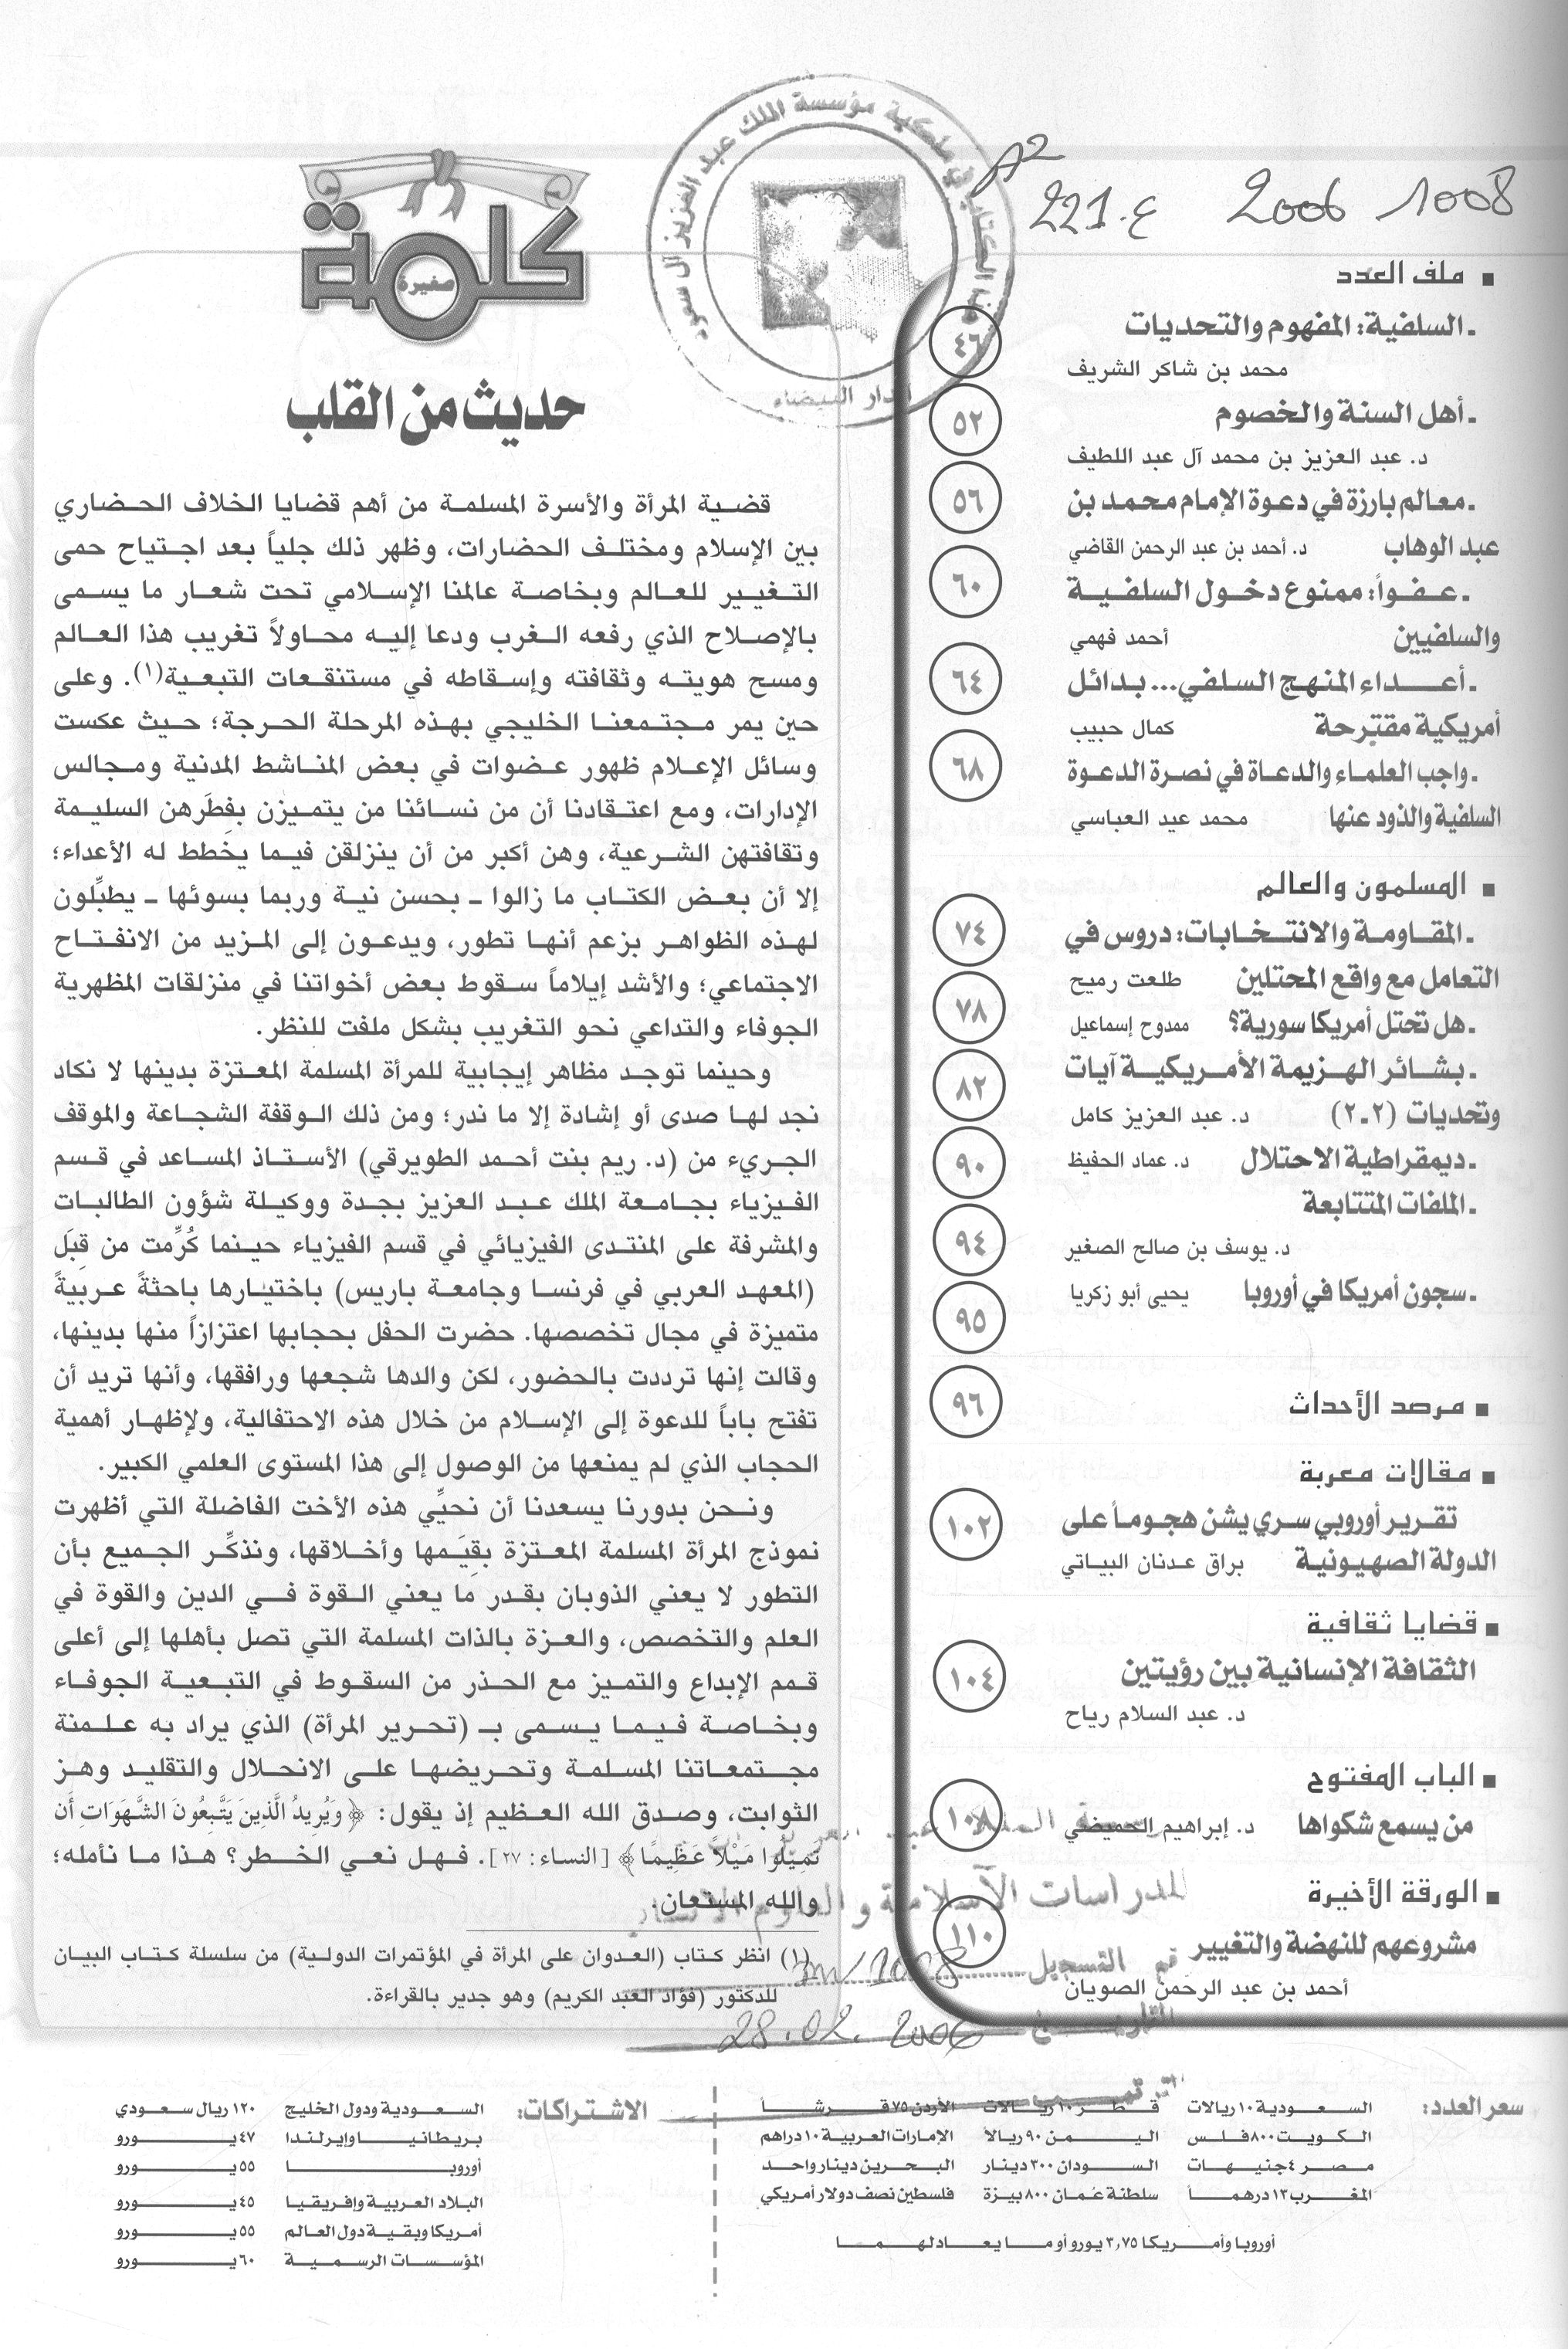 A2
221.ع 2006 1008
مؤسسة الملك عبد العزيز آل سعود
الدار البيضاء
▪ ملف العدد
ـ السلفية: المفهوم والتحديات
محمد بن شاكر الشريف
٤٦
ـ أهل السنة والخصوم
د. عبد العزيز بن محمد آل عبد اللطيف
٥٢
ـ معالم بارزة في دعوة الإمام محمد بن
عبد الوهاب د. أحمد بن عبد الرحمن القاضي
٥٦
ـ عفواً: ممنوع دخول السلفية
والسلفيين أحمد فهمي
٦٠
ـ أعداء المنهج السلفي... بدائل
أمريكية مقترحة كمال حبيب
٦٤
ـ واجب العلماء والدعاة في نصرة الدعوة
السلفية والذود عنها محمد عيد العباسي
٦٨
▪ المسلمون والعالم
ـ المقاومة والانتخابات: دروس في
التعامل مع واقع المحتلين طلعت رميح
٧٤
ـ هل تحتل أمريكا سورية؟ ممدوح إسماعيل
٧٨
ـ بشائر الهزيمة الأمريكية آيات
وتحديات (٢ـ٢) د. عبد العزيز كامل
٨٢
ـ ديمقراطية الاحتلال د. عماد الحفيظ
٩٠
ـ الملفات المتتابعة
د. يوسف بن صالح الصغير
٩٤
ـ سجون أمريكا في أوروبا يحيى أبو زكريا
٩٥
▪ مرصد الأحداث
٩٦
▪ مقالات معربة
تقرير أوروبي سري يشن هجوماً على
الدولة الصهيونية براق عدنان البياتي
١٠٢
▪ قضايا ثقافية
الثقافة الإنسانية بين رؤيتين
د. عبد السلام رياح
١٠٤
▪ الباب المفتوح
من يسمع شكواها د. إبراهيم الحميضي
١٠٨
▪ الورقة الأخيرة
مشروعهم للنهضة والتغيير
أحمد بن عبد الرحمن الصويان
١١٠
كلمة
صغيرة
حديث من القلب
قضية المرأة والأسرة المسلمة من أهم قضايا الخلاف الحضاري
بين الإسلام ومختلف الحضارات، وظهر ذلك جلياً بعد اجتياح حمى
التغيير للعالم وبخاصة عالمنا الإسلامي تحت شعار ما يسمى
بالإصلاح الذي رفعه الغرب ودعا إليه محاولاً تغريب هذا العالم
ومسح هويته وثقافته وإسقاطه في مستنقعات التبعية(١). وعلى
حين يمر مجتمعنا الخليجي بهذه المرحلة الحرجة؛ حيث عكست
وسائل الإعلام ظهور عضوات في بعض المناشط المدنية ومجالس
الإدارات، ومع اعتقادنا أن من نسائنا من يتميزن بفِطَرهن السليمة
وثقافتهن الشرعية، وهن أكبر من أن ينزلقن فيما يخطط له الأعداء؛
إلا أن بعض الكتاب ما زالوا ـ بحسن نية وربما بسوئها ـ يطبِّلون
لهذه الظواهر بزعم أنها تطور، ويدعون إلى المزيد من الانفتاح
الاجتماعي؛ والأشد إيلاماً سقوط بعض أخواتنا في منزلقات المظهرية
الجوفاء والتداعي نحو التغريب بشكل ملفت للنظر.
وحينما توجد مظاهر إيجابية للمرأة المسلمة المعتزة بدينها لا نكاد
نجد لها صدى أو إشادة إلا ما ندر؛ ومن ذلك الوقفة الشجاعة والموقف
الجريء من (د. ريم بنت أحمد الطويرقي) الأستاذ المساعد في قسم
الفيزياء بجامعة الملك عبد العزيز بجدة ووكيلة شؤون الطالبات
والمشرفة على المنتدى الفيزيائي في قسم الفيزياء حينما كُرِّمت من قِبَل
(المعهد العربي في فرنسا وجامعة باريس) باختيارها باحثةً عربيةً
متميزة في مجال تخصصها. حضرت الحفل بحجابها اعتزازاً منها بدينها،
وقالت إنها ترددت بالحضور، لكن والدها شجعها ورافقها، وأنها تريد أن
تفتح باباً للدعوة إلى الإسلام من خلال هذه الاحتفالية، ولإظهار أهمية
الحجاب الذي لم يمنعها من الوصول إلى هذا المستوى العلمي الكبير.
ونحن بدورنا يسعدنا أن نحيِّي هذه الأخت الفاضلة التي أظهرت
نموذج المرأة المسلمة المعتزة بقِيَمها وأخلاقها، ونذكِّر الجميع بأن
التطور لا يعني الذوبان بقدر ما يعني القوة في الدين والقوة في
العلم والتخصص، والعزة بالذات المسلمة التي تصل بأهلها إلى أعلى
قمم الإبداع والتميز مع الحذر من السقوط في التبعية الجوفاء
وبخاصة فيما يسمى بـ (تحرير المرأة) الذي يراد به علمنة
مجتمعاتنا المسلمة وتحريضها على الانحلال والتقليد وهز
الثوابت، وصدق الله العظيم إذ يقول: ﴿وَيُرِيدُ الَّذِينَ يَتَّبِعُونَ الشَّهَوَاتِ أَن
تَمِيلُوا مَيْلاً عَظِيمًا﴾ [النساء: ٢٧]. فهل نعي الخطر؟ هذا ما نأمله؛
والله المستعان.
(١) انظر كتاب (العدوان على المرأة في المؤتمرات الدولية) من سلسلة كتاب البيان
للدكتور (فؤاد العبد الكريم) وهو جدير بالقراءة.
للدراسات الإسلامية والعلوم الإنسانية
رقم التسجيل 1008
التاريخ 28.02.2006
سعر العدد:
السعودية ١٠ ريالات قطر ١٠ ريالات الأردن ٧٥ قرشاً
الكويت ٨٠٠ فلس اليمن ٩٠ ريالاً الإمارات العربية ١٠ دراهم
مصر ٤ جنيهات السودان ٣٠٠ دينار البحرين دينار واحد
المغرب ١٣ درهماً سلطنة عُمان ٨٠٠ بيزة فلسطين نصف دولار أمريكي
أوروبا وأمريكا ٣,٧٥ يورو أو ما يعادلهما
الاشتراكات:
السعودية ودول الخليج ١٢٠ ريال سعودي
بريطانيا وإيرلندا ٤٧ يورو
أوروبا ٥٥ يورو
البلاد العربية وإفريقيا ٤٥ يورو
أمريكا وبقية دول العالم ٥٥ يورو
المؤسسات الرسمية ٦٠ يورو